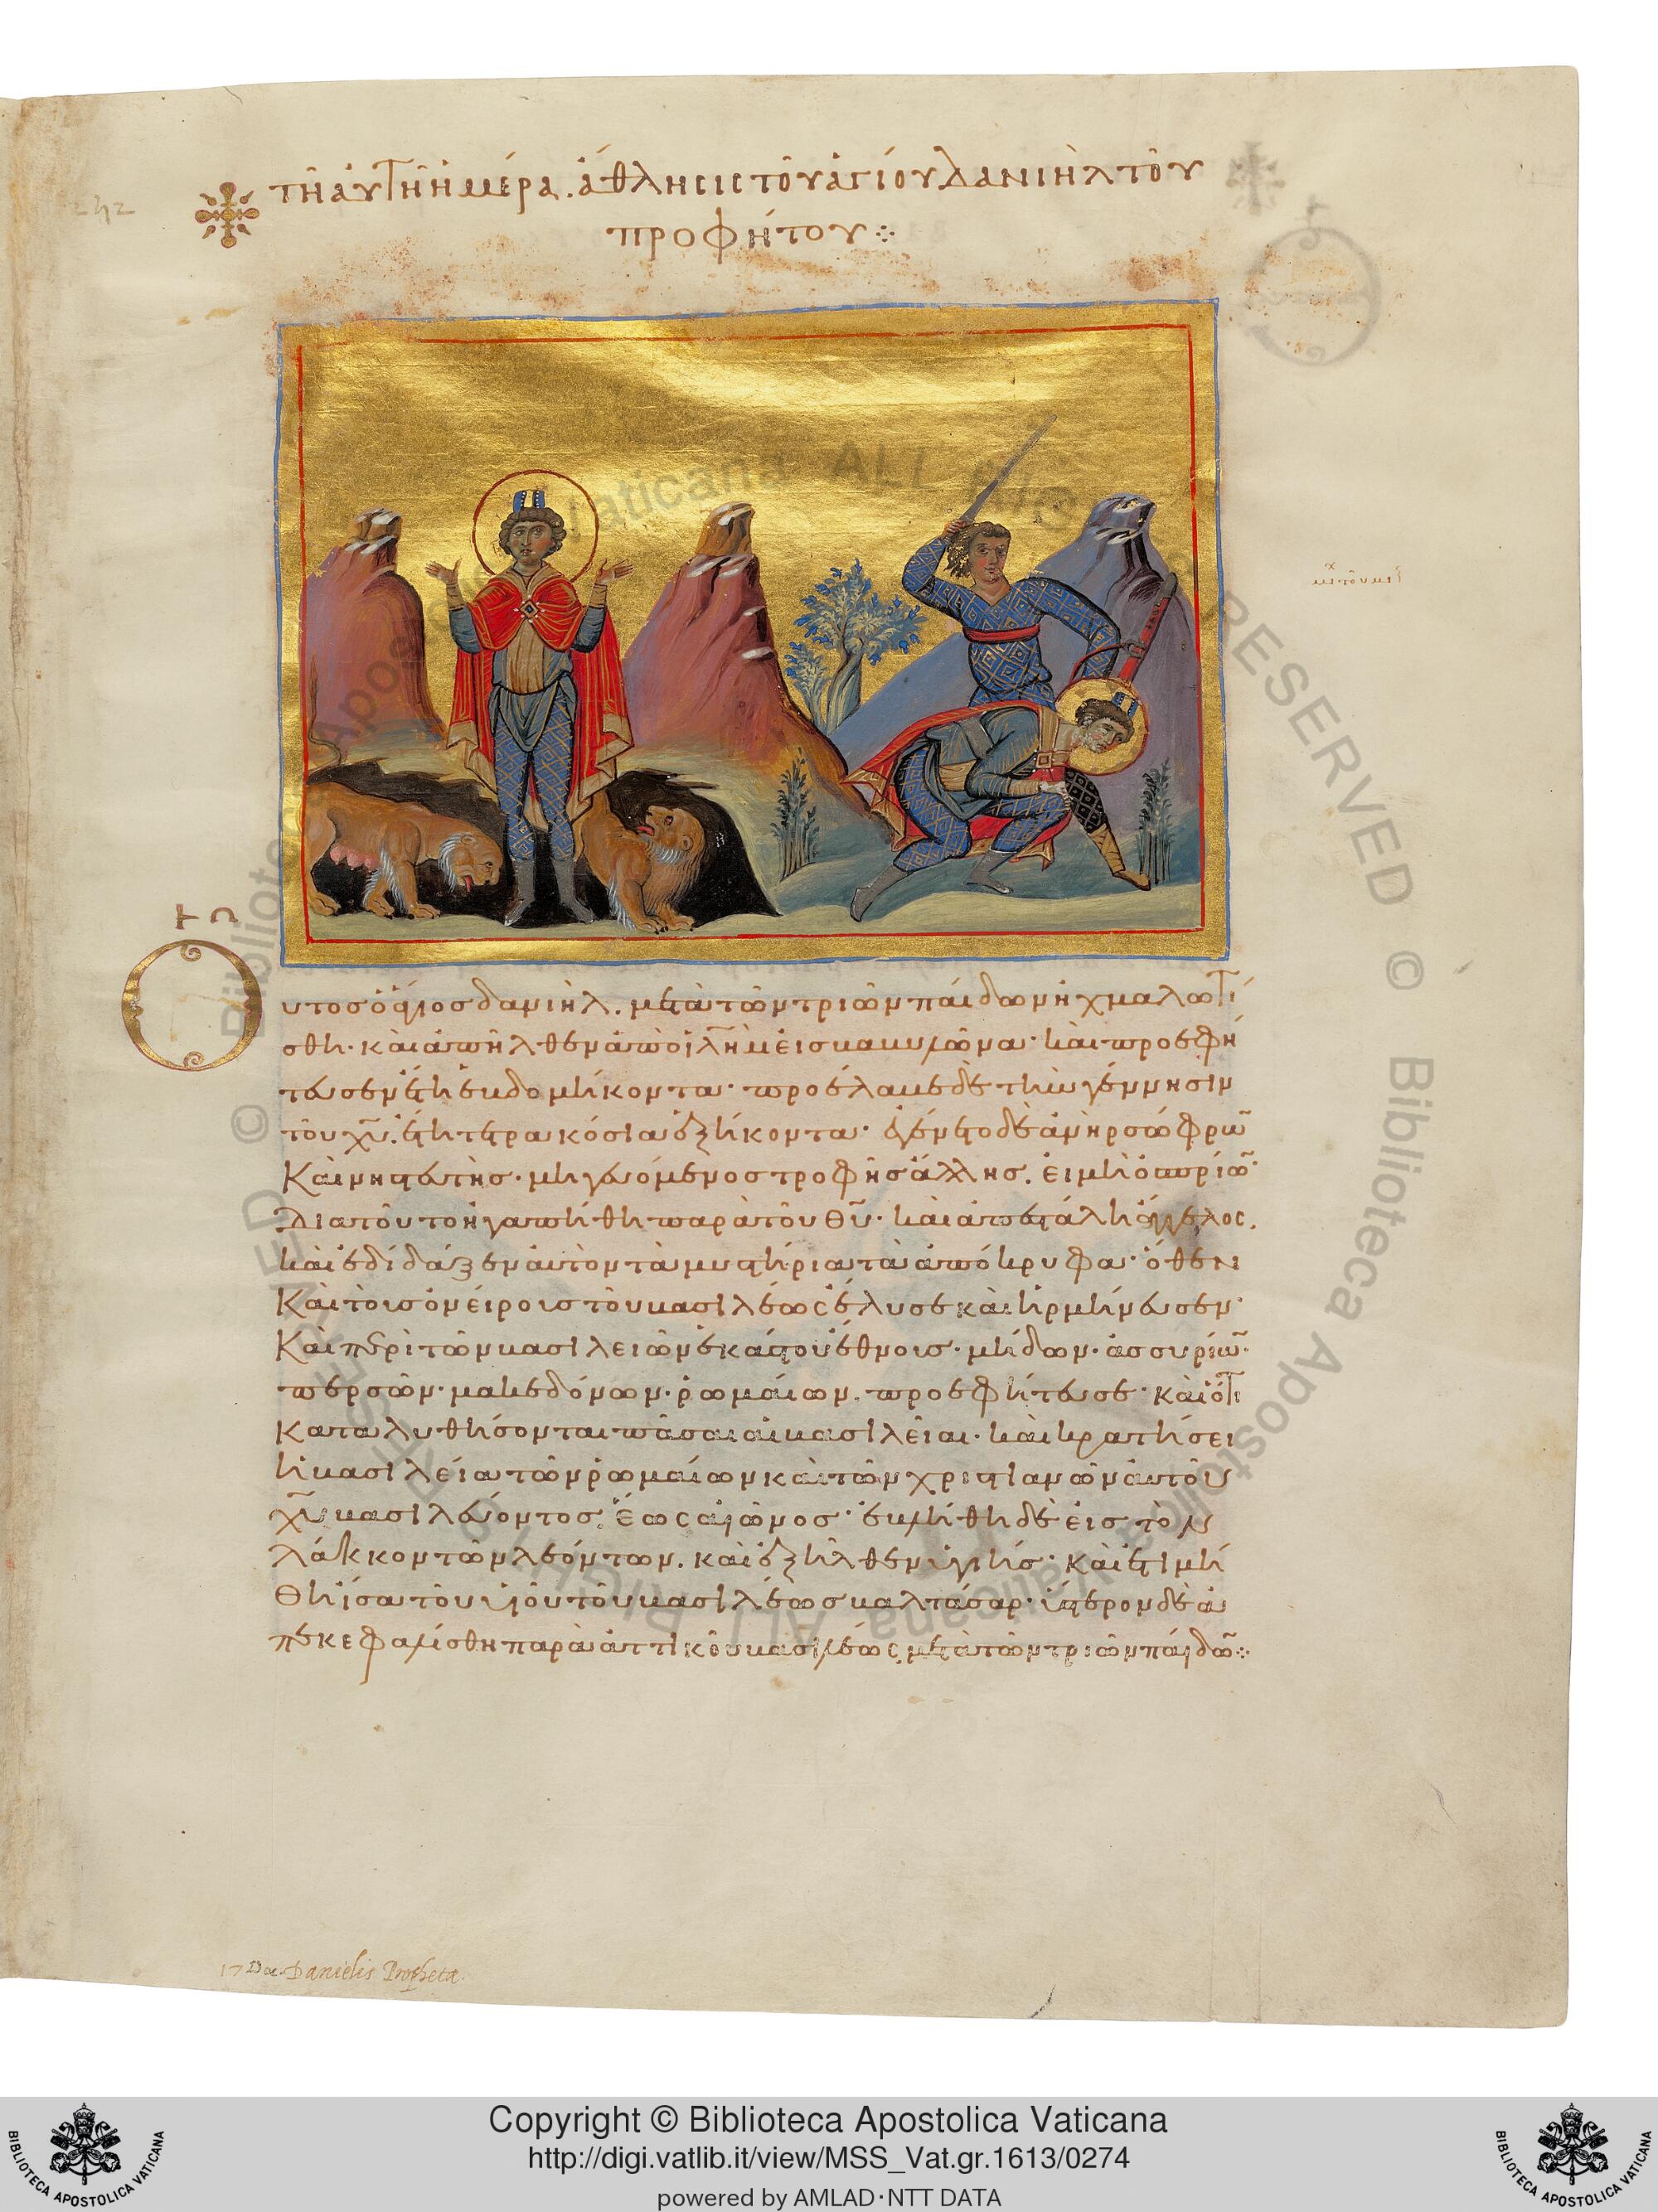 τῆ αὐτῆ ἡμέρα. ἄθλησις τοῦ ἁγίου δανιὴλ τοῦ
προφήτου
Οὗτος ὁ ἅγιος δανιὴλ. μετὰ τῶν τριῶν παίδων ἠχμαλωτί
σθη· καὶ ἀπῆλθεν ἀπὸ ἱλῆμ εἰς βαβυλῶνα· καὶ προεφή
τευσεν ἔτη ἑβδομήκοντα· προέλαβε δὲ τὴν γέννησιν
τοῦ χῦ. ἔτη τετρακόσια ἑξήκοντα· ἐγένετο δὲ ἀνὴρ σώφρων
Καὶ νηστευτὴς· μὴ γευόμενος τροφῆς ἄλλης. εἰ μὴ ὀσπρίων·
Διὰ τοῦτο ἠγαπήθη παρὰ τοῦ θῦ· καὶ ἀπεστάλη ἄγγελος,
καὶ ἐδίδαξεν αὐτὸν τὰ μυστήρια τὰ ἀπόκρυφα· ὅθεν
Καὶ τοὺς ὀνείρους τοῦ βασιλέως ἔλυσε καὶ ἡρμήνευσεν·
Καὶ περὶ τῶν βασιλειῶν ἑκάστου ἔθνους· μήδων· ἀσσυρίων·
περσῶν· μακεδόνων· ῥωμαίων. προεφήτευσε· καὶ ὅτι
καταλυθήσονται πᾶσαι αἱ βασιλεῖαι· καὶ κρατήσει
ἡ βασιλεία τῶν ῥωμαίων καὶ τῶν χριστιανῶν αὐτοῦ
χῦ βασιλεύοντος. ἕως αἰῶνος· ἐβλήθη δὲ εἰς τὸν
λάκκον τῶν λεόντων. καὶ ἐξῆλθεν ὑγιής· καὶ ἐτιμή
θη ἴσα τοῦ υἱοῦ τοῦ βασιλέως βαλτάσαρ· ὕστερον δὲ ἀ
πεκεφαλίσθη παρὰ ἀττικοῦ βασιλέως μετὰ τῶν τριῶν παίδων
17 Dec. Danielis Propheta
Copyright © Biblioteca Apostolica Vaticana
http://digi.vatlib.it/view/MSS_Vat.gr.1613/0274
powered by AMLAD·NTT DATA
BIBLIOTECA APOSTOLICA VATICANA
BIBLIOTECA APOSTOLICA VATICANA
© Biblioteca Apostolica Vaticana ALL RIGHTS RESERVED © Biblioteca Apostolica Vaticana ALL RIGHTS RESERVED